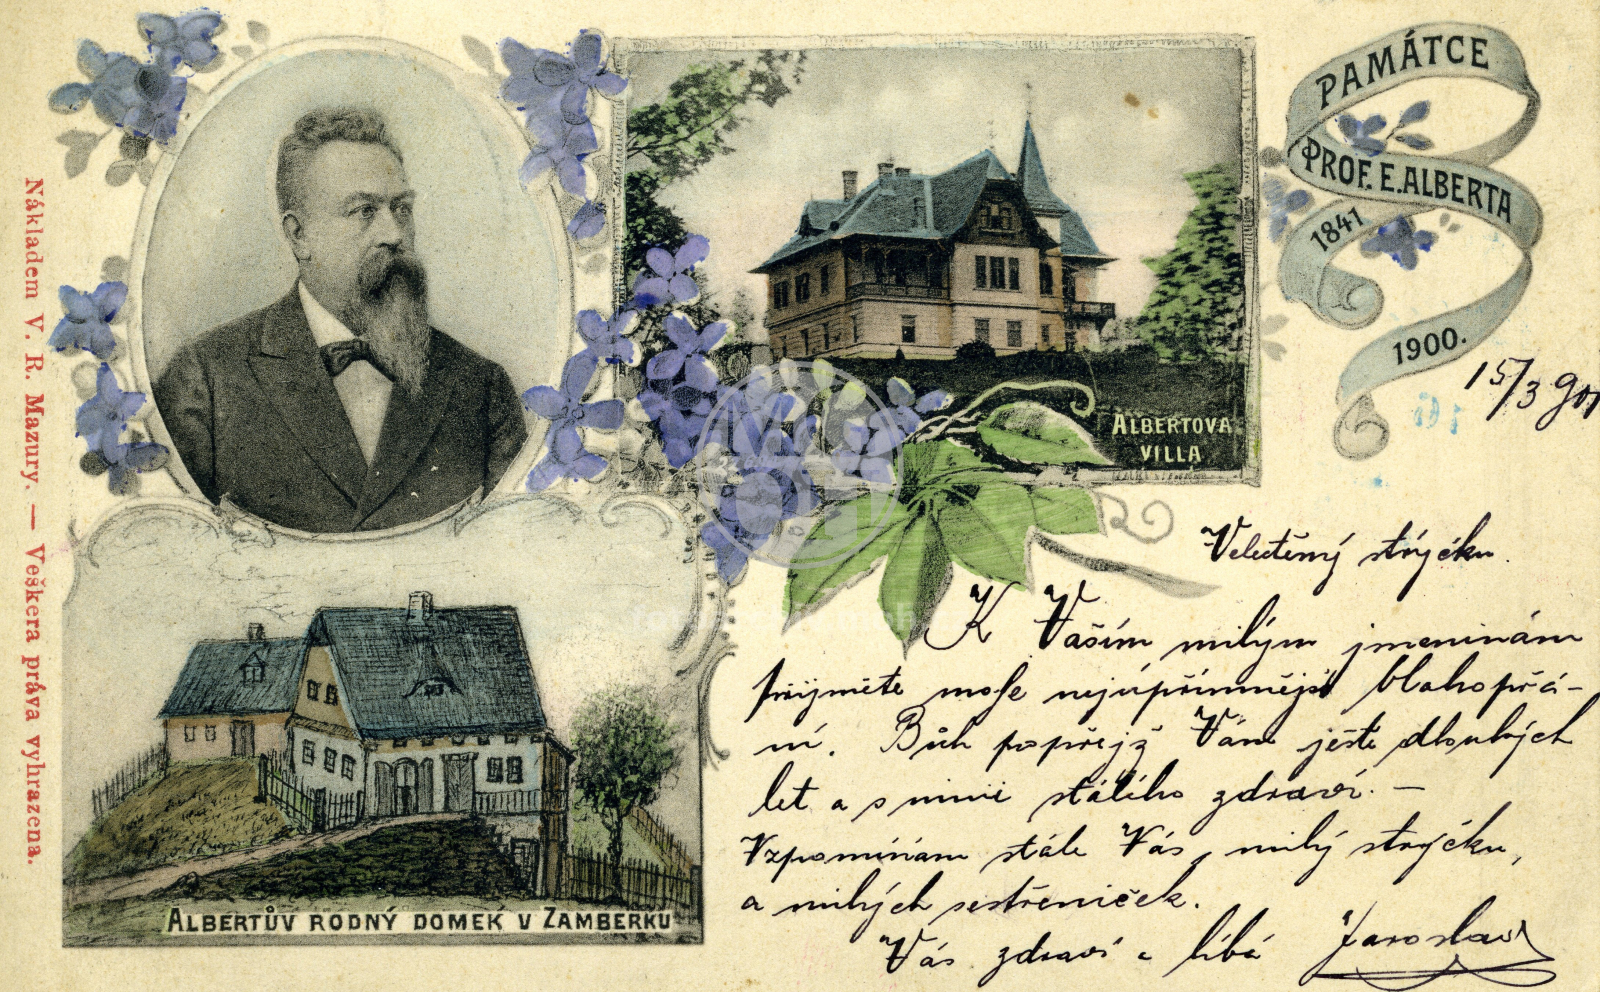 PAMÁTCE
PROF. E. ALBERTA
1841
1900.
15/3 901
ALBERTOVA
VILLA
Nákladem V. R. Mazury. — Veškera práva vyhrazena.
ALBERTŮV RODNÝ DOMEK V ZAMBERKU
Velectěný strýčku.
K Vašim milým jmeninám
přijměte moje nejúpřímnější blahopřá-
ní. Bůh popřejž Vám ješte dlouhých
let a s nimi stálého zdraví. —
Vzpomínám stále Vás, milý strýčku,
a milých sestřeniček.
Vás zdraví a líbá Jaroslav